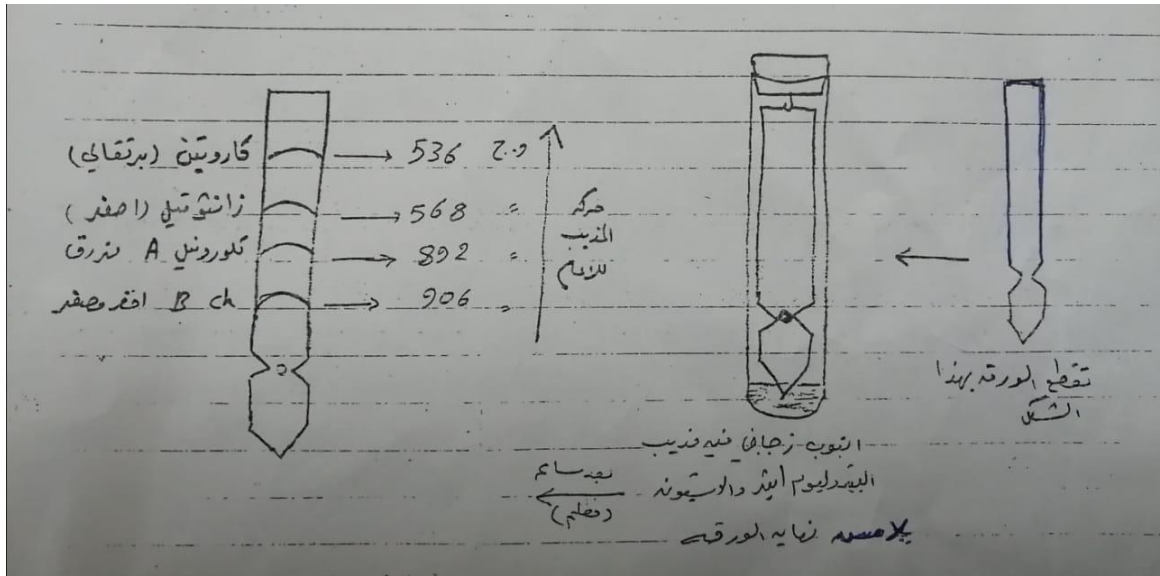 كاروتين (برتقالي) → 536 و.ج
زانثوفيل (اصفر) → 568 =
كلوروفيل A مزرق → 892 =
ch B اخضر مصفر → 906 =
حركة
المذيب
للاعلى
تقطع الورقه بهذا
الشكل
انبوب زجاجي فيه مذيب
البتروليوم ايثر والاسيتونه
يلامسه نهايه الورقه
بعد ساعه
(مظلم)